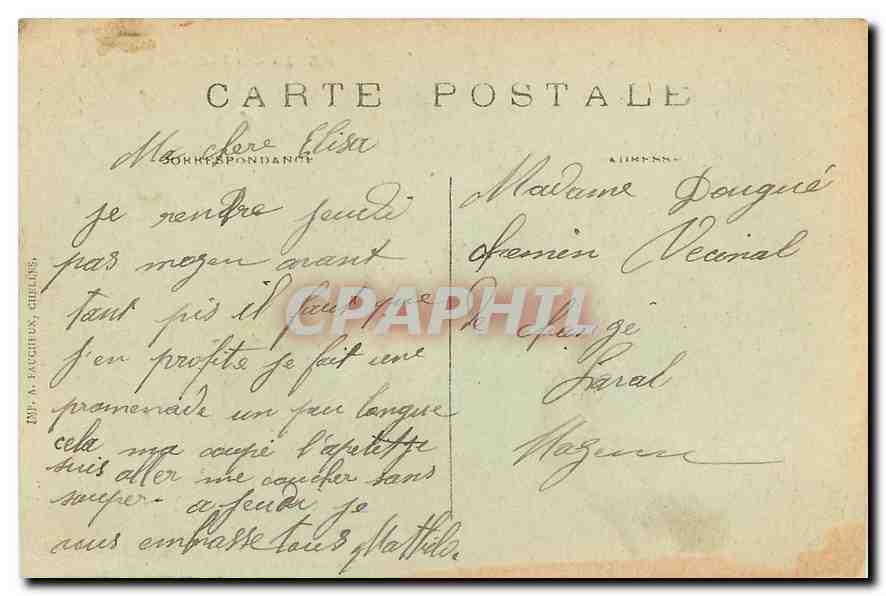 CARTE POSTALE
CORRESPONDANCE
ADRESSE
Ma chere Elisa
je rendre jeudi
pas moyen avant
tant pis il faut que
j'en profite je fait une
promenade un peu longue
cela ma coupé l'apetit je
suis aller me coucher sans
souper. a jeudi je
vous embrasse tous Mathilde
Madame Dougué
chemin Vecinal
de changé
Laval
Mayenne
IMP. A. FAUCHEUX, CHELLES.
CPAPHIL